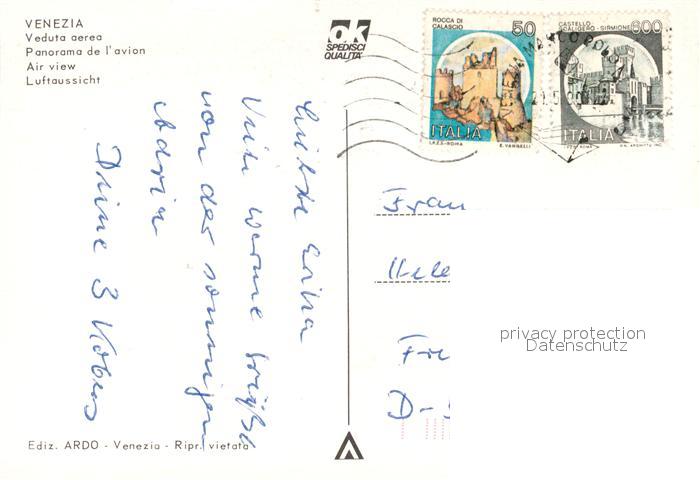 VENEZIA
Veduta aerea
Panorama de l'avion
Air view
Luftaussicht
ok
SPEDISCI
QUALITÀ
ROCCA DI
CALASCIO
50
ITALIA
I.P.Z.S.-ROMA E. VANGELLI
CASTELLO
SCALIGERO-SIRMIONE
600
ITALIA
Liebe Erika
Viele warme Grüße
von der sonnigen
Adria
Deine 3
Frau
Hele
Fre
D-
privacy protection
Datenschutz
Ediz. ARDO - Venezia - Ripr. vietata